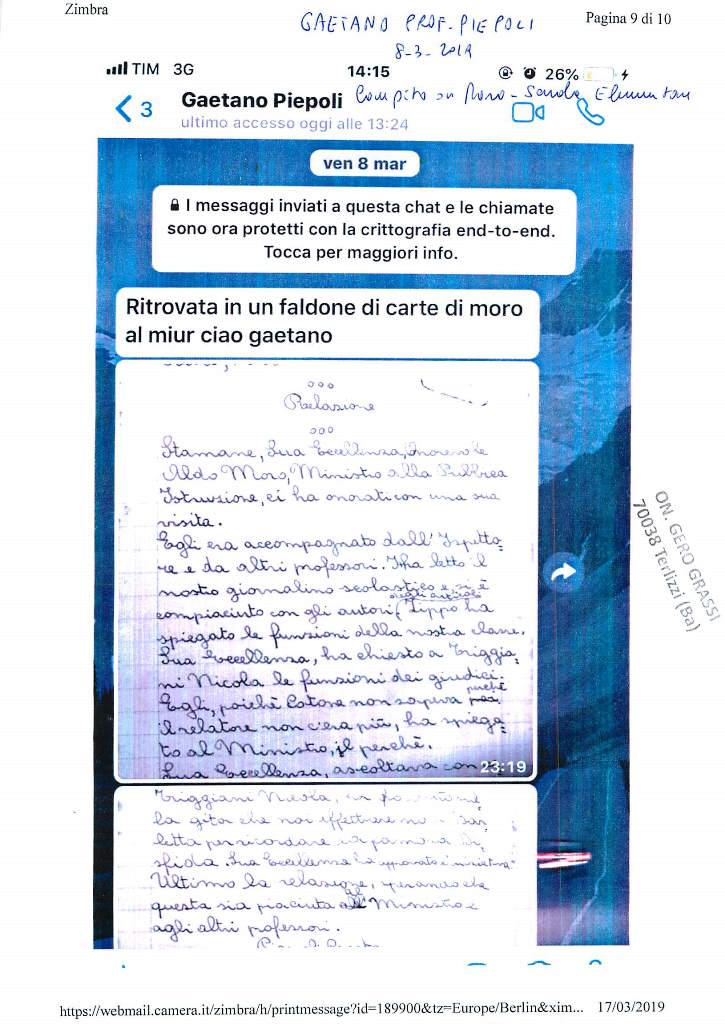 Zimbra
GAETANO PROF. PIEPOLI
Pagina 9 di 10
8-3-2019
TIM 3G
14:15
26%
3
Gaetano Piepoli
Compito su Moro - Scuola Elementare
ultimo accesso oggi alle 13:24
ven 8 mar
I messaggi inviati a questa chat e le chiamate
sono ora protetti con la crittografia end-to-end.
Tocca per maggiori info.
Ritrovata in un faldone di carte di moro
al miur ciao gaetano
Relazione
Stamane, Sua Eccellenza, Onorevole
Aldo Moro, Ministro alla Pubblica
Istruzione, ci ha onorati con una sua
visita.
Egli era accompagnato dall'Ispetto-
re e da altri professori. Ha letto il
nostro giornalino scolastico e si è
degli articoli
compiaciuto con gli autori (Tippo ha
spiegato le funzioni della nostra classe.
Sua Eccellenza, ha chiesto a Triggia-
ni Nicola le funzioni dei giudici.
perché
Egli, poiché Catone non sapeva
il relatore non c'era più, ha spiega-
to al Ministro, il perché.
Sua Eccellenza, ascoltava con
23:19
Triggiani Nicola,
la gita che noi effettueremo a Bar-
letta per ricordare la famosa di-
sfida. Sua Eccellenza ha approvato
Ultimo la relazione, sperando che
questa sia piaciuta al Ministro e
agli altri professori.
ON. GERO GRASSI
70038 Terlizzi (Ba)
https://webmail.camera.it/zimbra/h/printmessage?id=189900&tz=Europe/Berlin&xim...
17/03/2019